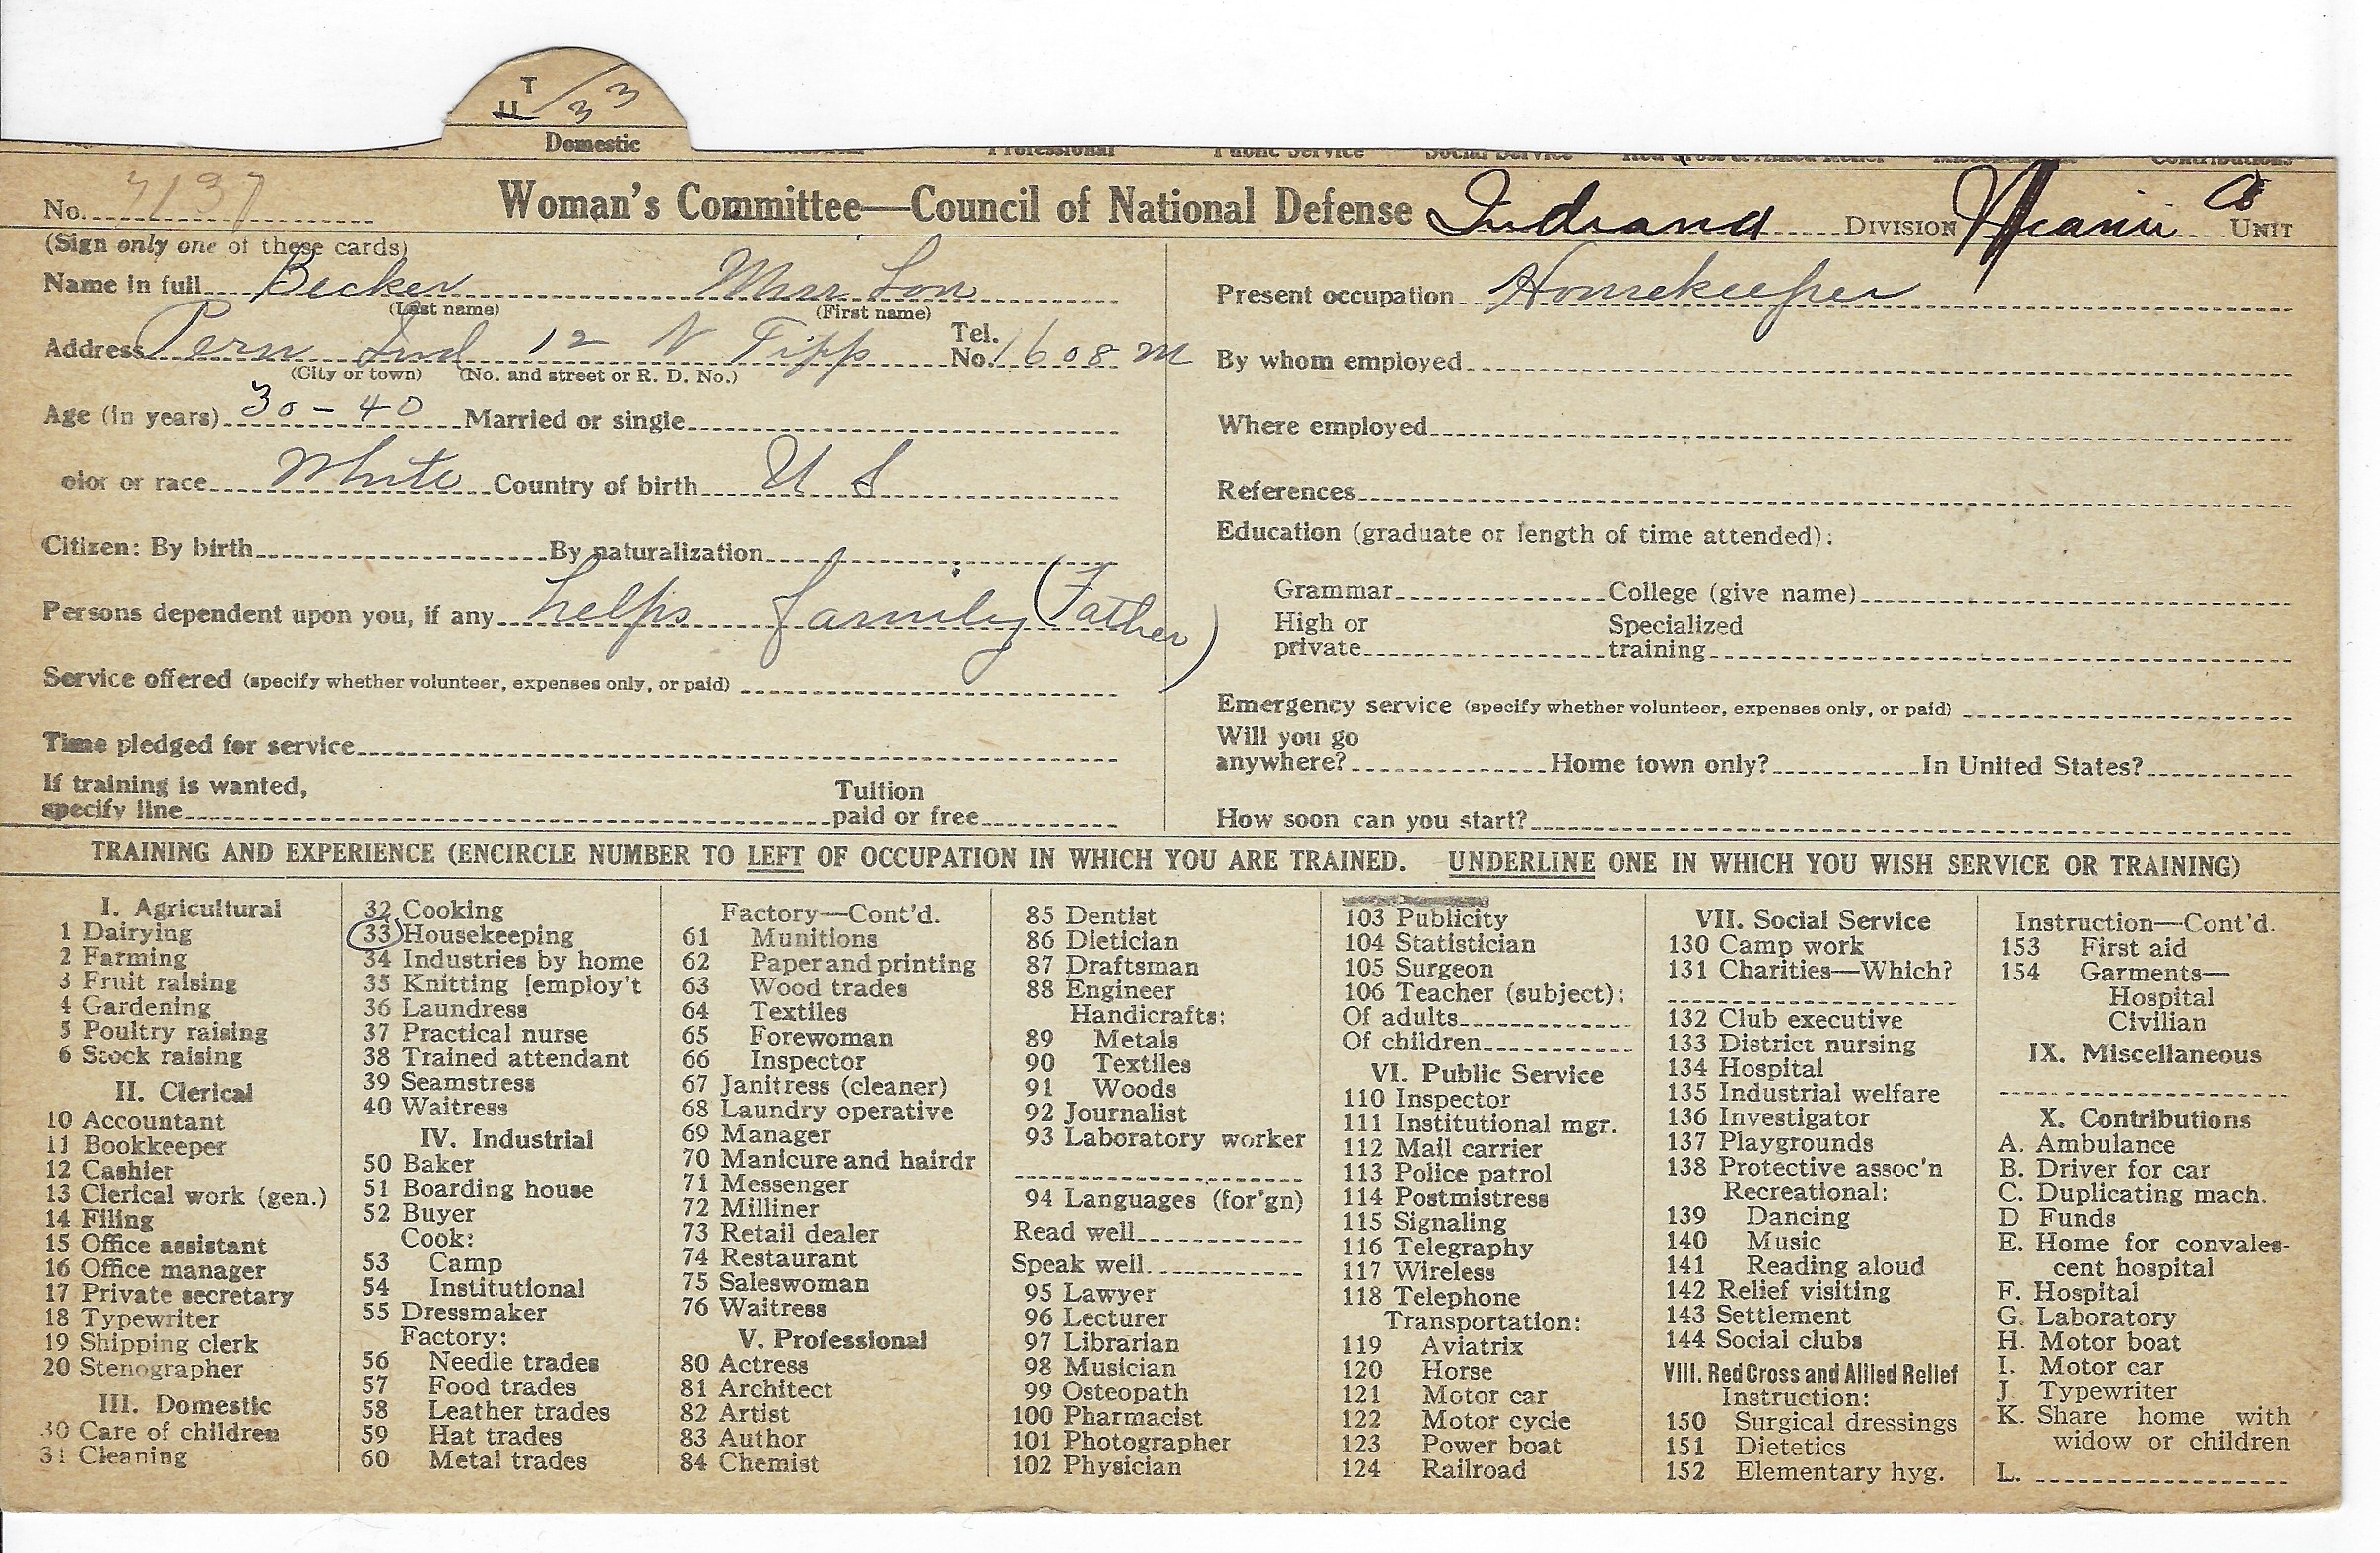 T
33
Domestic
No. 7137
Woman's Committee—Council of National Defense Indiana DIVISION Miami Co UNIT
(Sign only one of these cards)
Name in full Becker Miss Lon
(Last name) (First name)
Address Peru Ind 12 N Tipp Tel. No. 1608 M
(City or town) (No. and street or R. D. No.)
Age (in years) 30-40 Married or single
olor or race White Country of birth U S
Citizen: By birth By naturalization
Persons dependent upon you, if any helps family (Father)
Service offered (specify whether volunteer, expenses only, or paid)
Time pledged for service
If training is wanted,
specify line
Tuition
paid or free
Present occupation Housekeeper
By whom employed
Where employed
References
Education (graduate or length of time attended):
Grammar College (give name)
High or
private
Specialized
training
Emergency service (specify whether volunteer, expenses only, or paid)
Will you go
anywhere? Home town only? In United States?
How soon can you start?
TRAINING AND EXPERIENCE (ENCIRCLE NUMBER TO LEFT OF OCCUPATION IN WHICH YOU ARE TRAINED. UNDERLINE ONE IN WHICH YOU WISH SERVICE OR TRAINING)
I. Agricultural
1 Dairying
2 Farming
3 Fruit raising
4 Gardening
5 Poultry raising
6 Stock raising
II. Clerical
10 Accountant
11 Bookkeeper
12 Cashier
13 Clerical work (gen.)
14 Filing
15 Office assistant
16 Office manager
17 Private secretary
18 Typewriter
19 Shipping clerk
20 Stenographer
III. Domestic
30 Care of children
31 Cleaning
32 Cooking
33 Housekeeping
34 Industries by home
35 Knitting [employ't
36 Laundress
37 Practical nurse
38 Trained attendant
39 Seamstress
40 Waitress
IV. Industrial
50 Baker
51 Boarding house
52 Buyer
Cook:
53 Camp
54 Institutional
55 Dressmaker
Factory:
56 Needle trades
57 Food trades
58 Leather trades
59 Hat trades
60 Metal trades
Factory—Cont'd.
61 Munitions
62 Paper and printing
63 Wood trades
64 Textiles
65 Forewoman
66 Inspector
67 Janitress (cleaner)
68 Laundry operative
69 Manager
70 Manicure and hairdr
71 Messenger
72 Milliner
73 Retail dealer
74 Restaurant
75 Saleswoman
76 Waitress
V. Professional
80 Actress
81 Architect
82 Artist
83 Author
84 Chemist
85 Dentist
86 Dietician
87 Draftsman
88 Engineer
Handicrafts:
89 Metals
90 Textiles
91 Woods
92 Journalist
93 Laboratory worker
94 Languages (for'gn)
Read well
Speak well
95 Lawyer
96 Lecturer
97 Librarian
98 Musician
99 Osteopath
100 Pharmacist
101 Photographer
102 Physician
103 Publicity
104 Statistician
105 Surgeon
106 Teacher (subject):
Of adults
Of children
VI. Public Service
110 Inspector
111 Institutional mgr.
112 Mail carrier
113 Police patrol
114 Postmistress
115 Signaling
116 Telegraphy
117 Wireless
118 Telephone
Transportation:
119 Aviatrix
120 Horse
121 Motor car
122 Motor cycle
123 Power boat
124 Railroad
VII. Social Service
130 Camp work
131 Charities—Which?
132 Club executive
133 District nursing
134 Hospital
135 Industrial welfare
136 Investigator
137 Playgrounds
138 Protective assoc'n
Recreational:
139 Dancing
140 Music
141 Reading aloud
142 Relief visiting
143 Settlement
144 Social clubs
VIII. Red Cross and Allied Relief
Instruction:
150 Surgical dressings
151 Dietetics
152 Elementary hyg.
Instruction—Cont'd.
153 First aid
154 Garments—
Hospital
Civilian
IX. Miscellaneous
X. Contributions
A. Ambulance
B. Driver for car
C. Duplicating mach.
D Funds
E. Home for convales-
cent hospital
F. Hospital
G. Laboratory
H. Motor boat
I. Motor car
J. Typewriter
K. Share home with
widow or children
L.